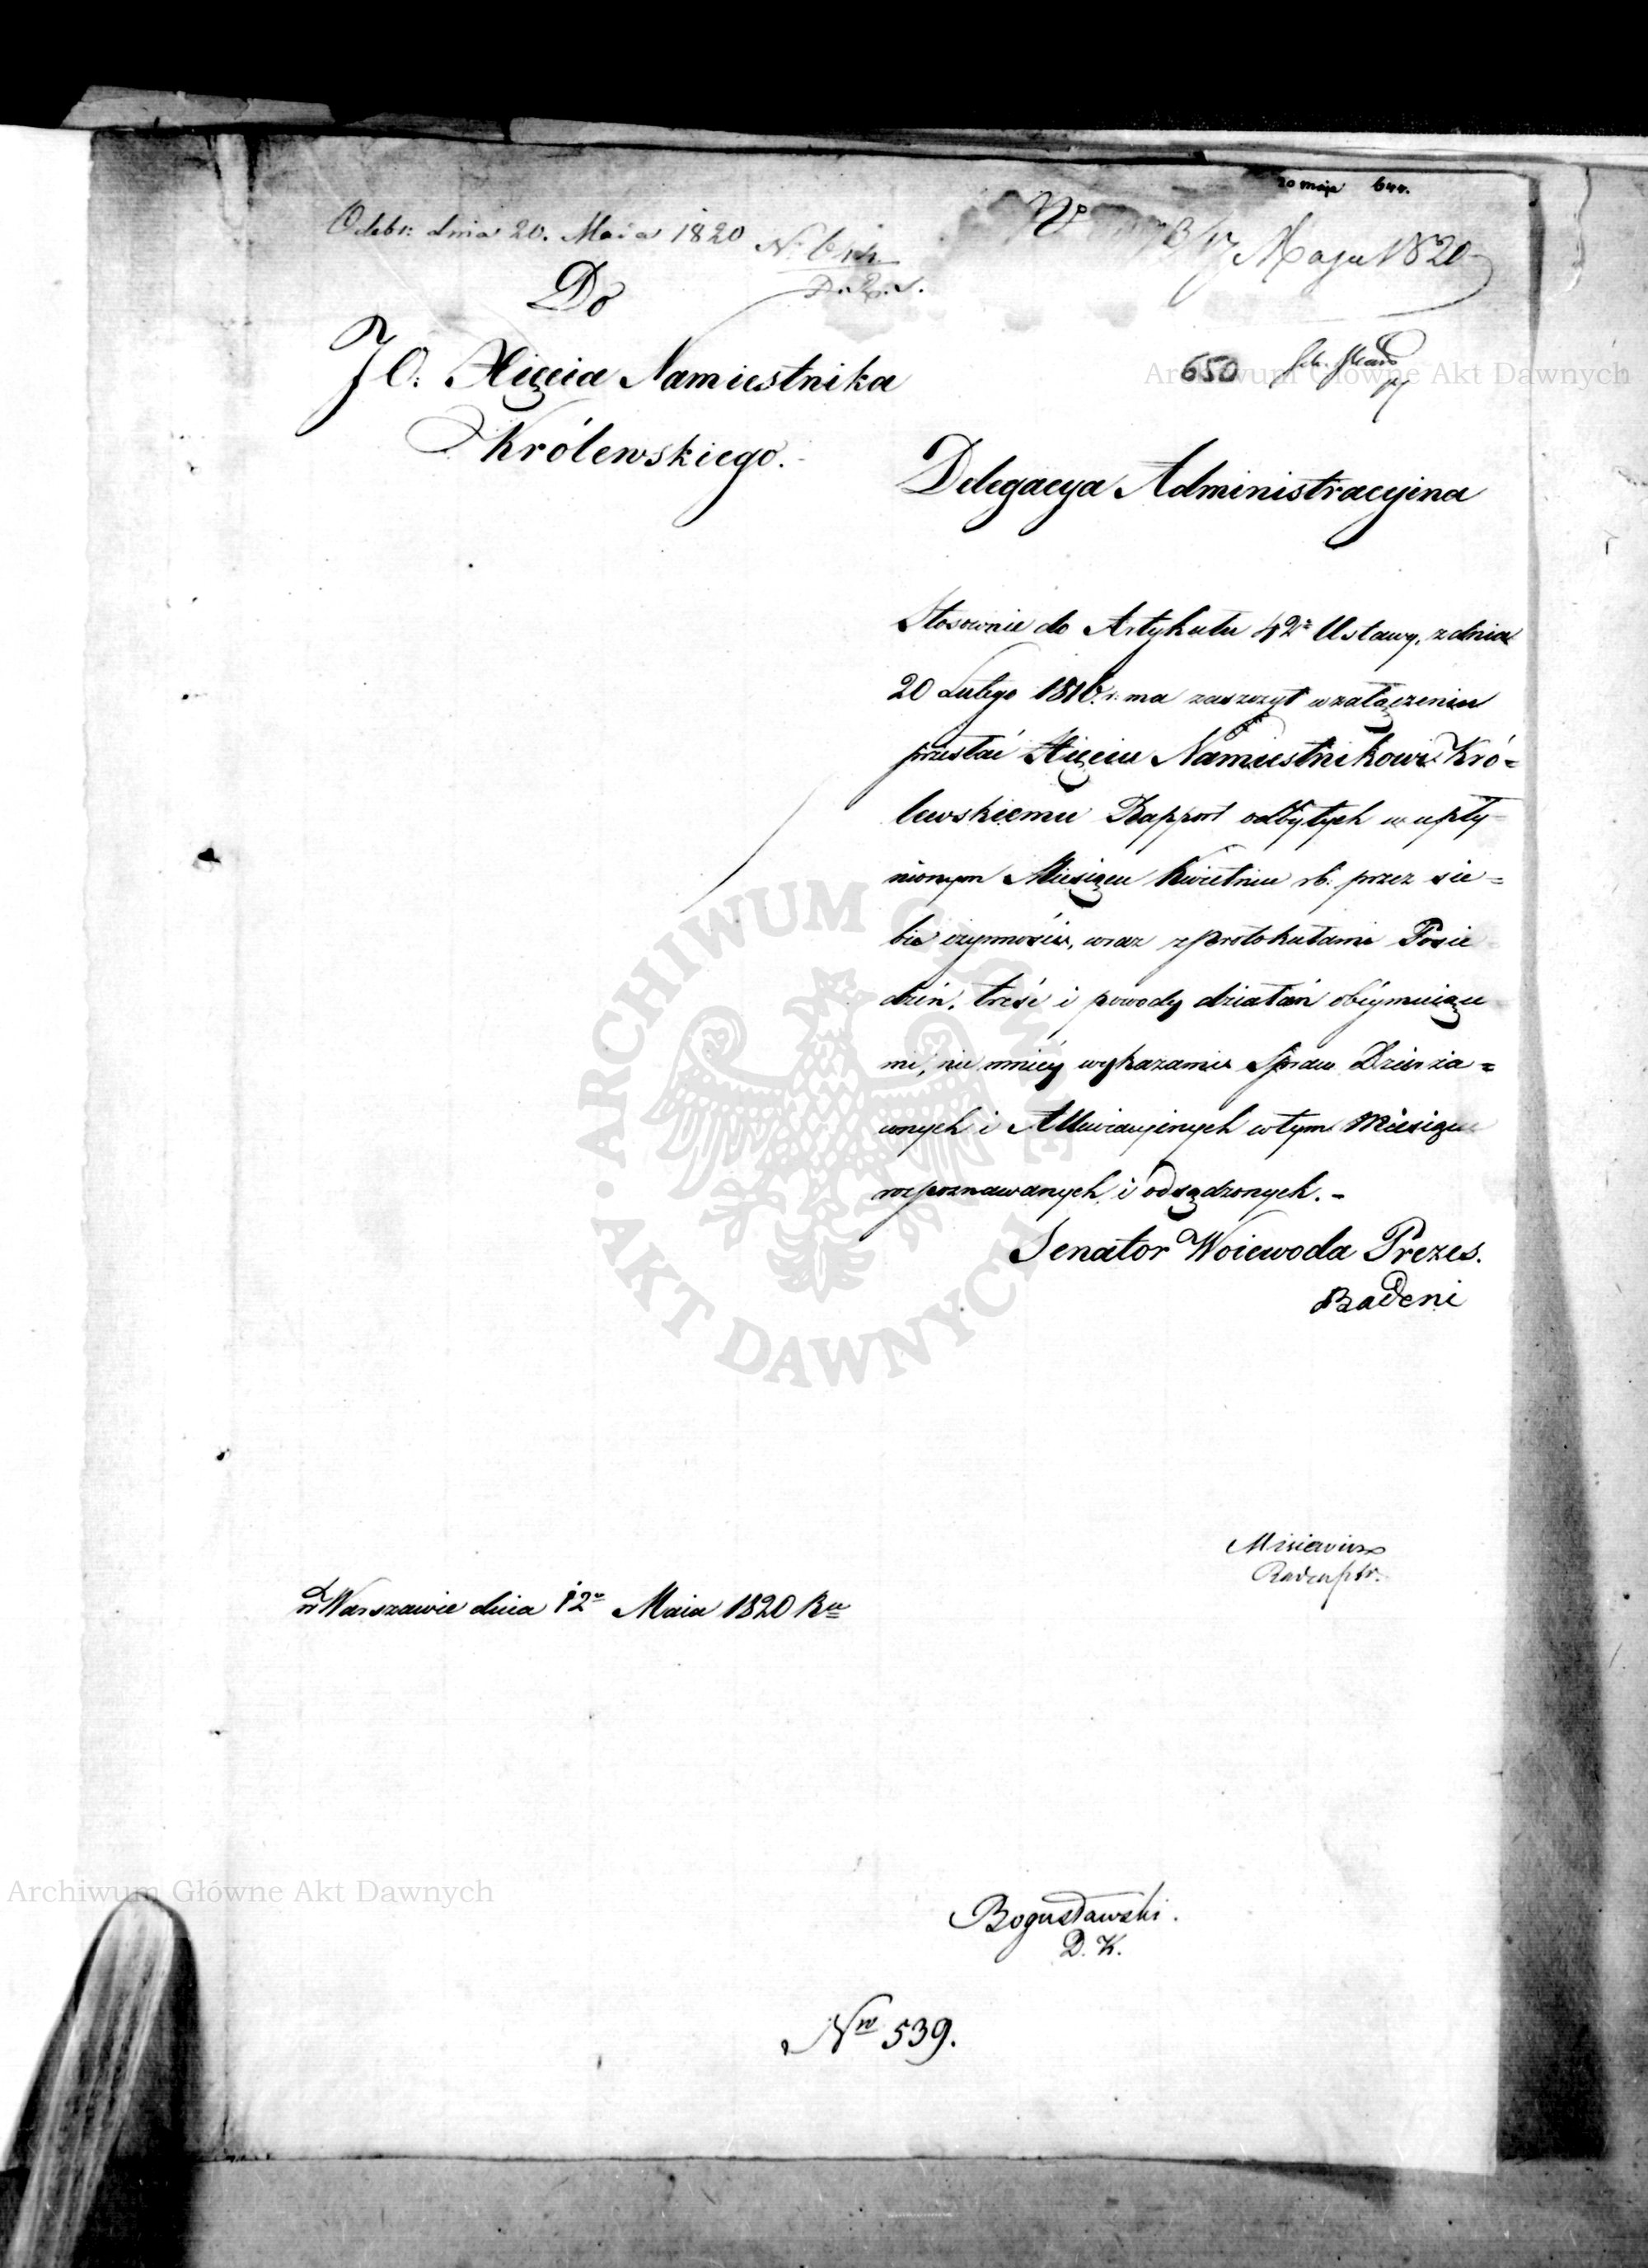 20 maja 644.
Odebr: dnia 20. Maia 1820 N.
No 13/17 Maju 1820
Do
JO. Xięcia Namiestnika
Królewskiego.
650
Delegacya Administracyina
Stosownie do Artykułu 42º Ustawy, z dnia
20 Lutego 1816. r: ma zaszczyt w załączeniu
przesłać Xięciu Namiestnikowi Kró=
lewskiemu Rapport odbytych w upły=
nionym Miesiącu Kwietniu rb: przez sie=
bie czynności, wraz z Protokułami Posie=
dzeń, treść i powody działań obeymuiące
mi, nie mniéy wykazanie Spraw Dzierża=
wnych i Alluwiacyinych w tym Miesiącu
rozpoznawanych i odsądzonych. -
Senator Woiewoda Prezes.
Badeni
Misiewicz
w Warszawie dnia 12º Maia 1820 Ru
Bogusławski.
D. K.
Nro 539.
Archiwum Główne Akt Dawnych
Archiwum Główne Akt Dawnych
ARCHIWUM GŁÓWNE AKT DAWNYCH